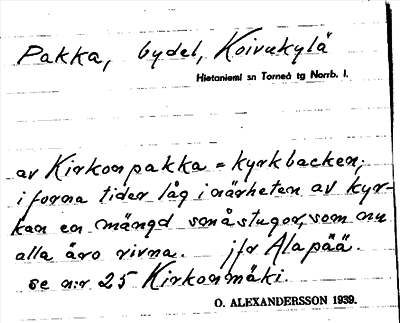 Pakka, bydel, Koivukylä
Hietaniemi sn Torneå tg Norrb. l.
av Kirkonpakka = kyrkbacken;
i forna tider låg i närheten av kyr-
kan en mängd småstugor, som nu
alla äro rivna. jfr Alapää.
se n:r 25 Kirkonmäki.
O. ALEXANDERSSON 1939.